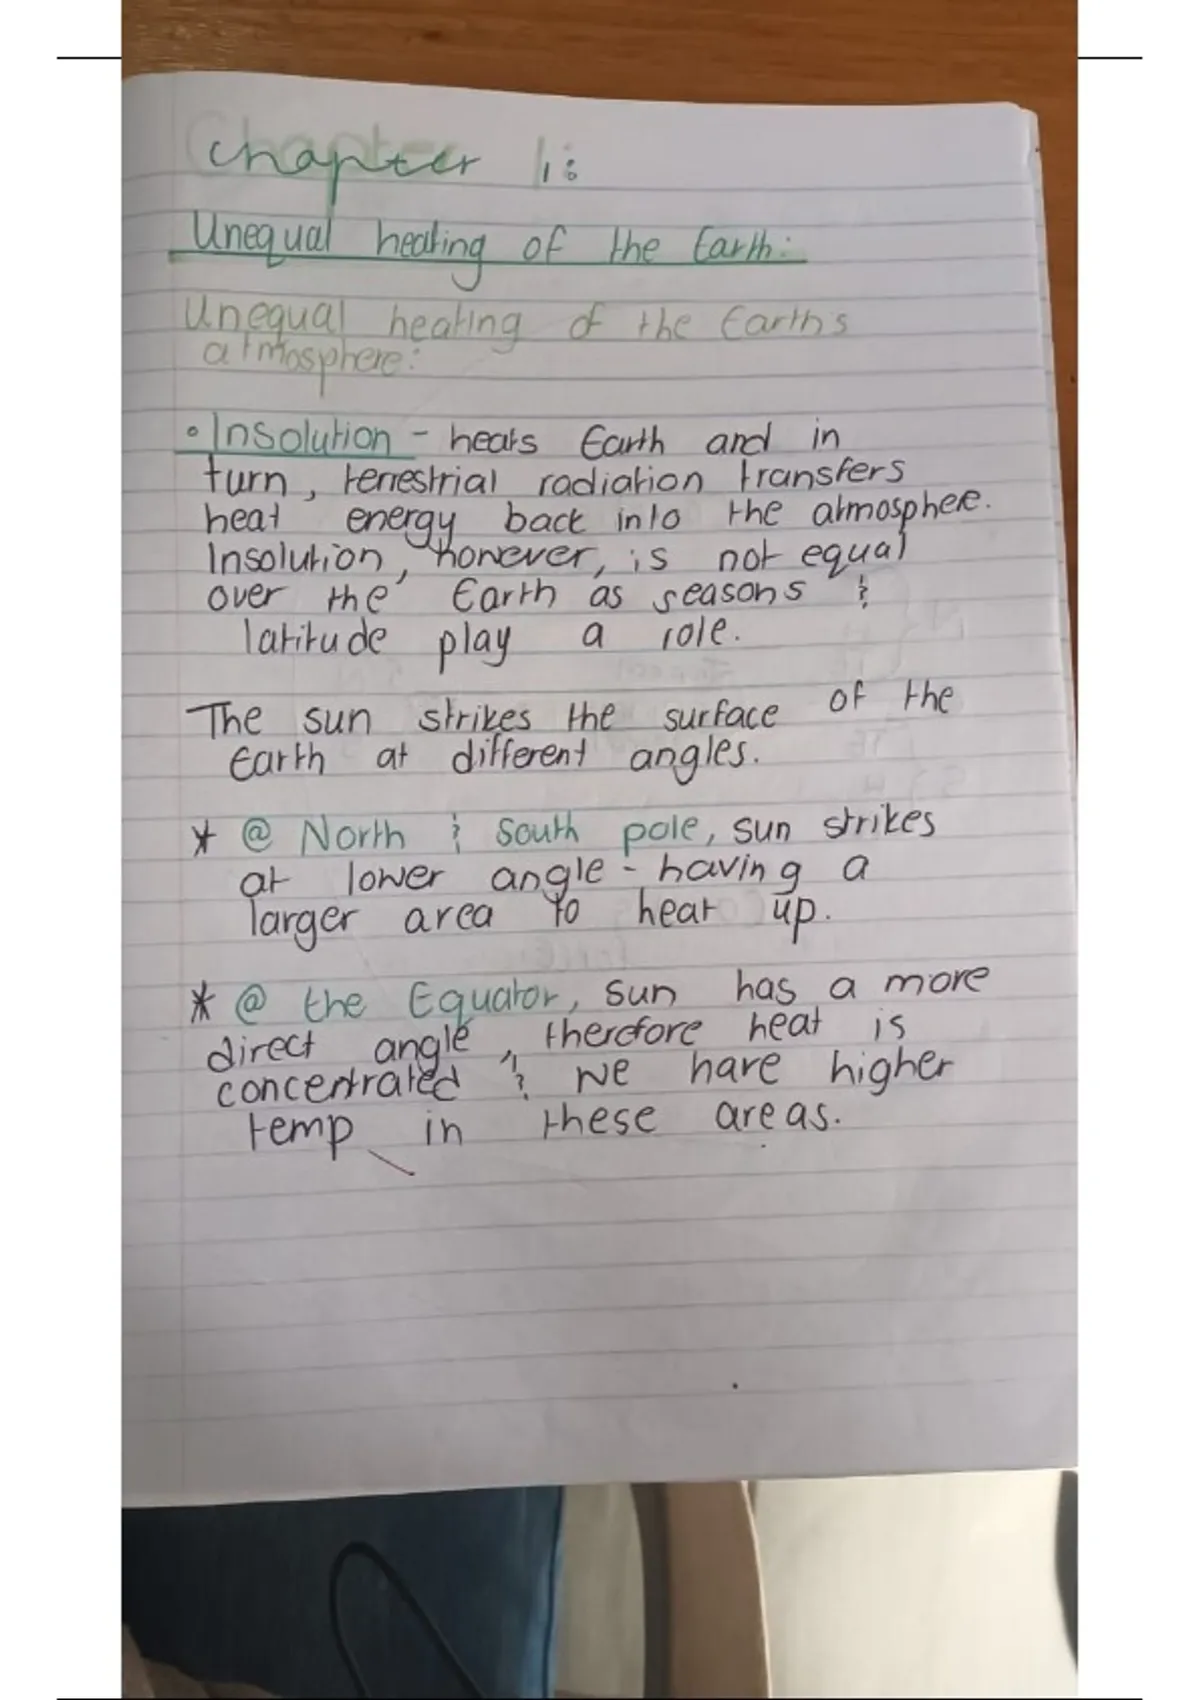 Chapter 1:
Unequal heating of the Earth:
Unequal heating of the Earth's
atmosphere:
• Insolution - heats Earth and in
turn, terrestrial radiation transfers
heat energy back into the atmosphere.
Insolution, however, is not equal
over the Earth as seasons &
latitude play a role.
The sun strikes the surface of the
Earth at different angles.
* @ North & South pole, sun strikes
at lower angle - having a
larger area to heat up.
* @ the Equator, sun has a more
direct angle, therefore heat is
concentrated & we have higher
temp in these areas.